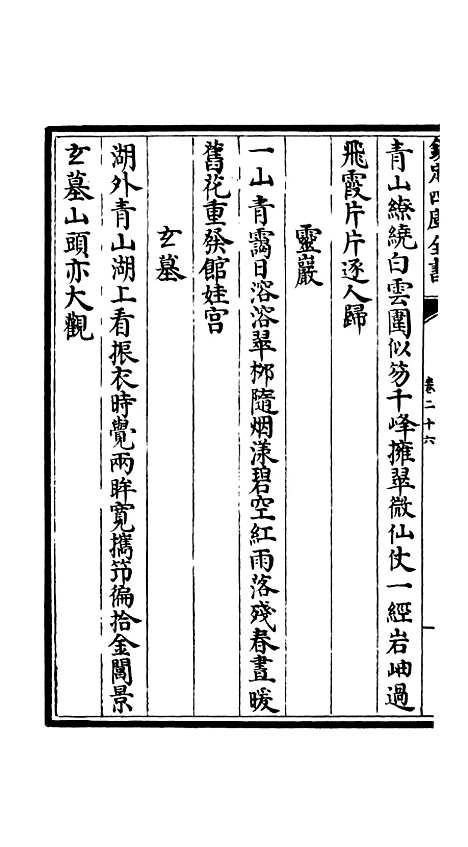 欽定四庫全書
卷二十六
青山繚繞白雲圍似笏千峰擁翠微仙仗一經岩岫過
飛霞片片逐人歸
靈巖
一山青靄日溶溶翠桞隨烟漾碧空紅雨落殘春晝暖
舊花重發館娃宫
玄墓
湖外青山湖上看振衣時覺兩眸寛攜笻徧拾金閶景
玄墓山頭亦大觀